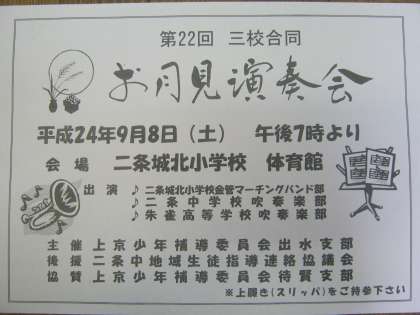 第22回 三校合同
お月見演奏会
平成24年9月8日(土) 午後7時より
会場 二条城北小学校 体育館
出演 ♪二条城北小学校金管マーチングバンド部
♪二条中学校吹奏楽部
♪朱雀高等学校吹奏楽部
主催 上京少年補導委員会出水支部
後援 二条中地域生徒指導連絡協議会
協賛 上京少年補導委員会待賢支部
※上履き(スリッパ)をご持参下さい